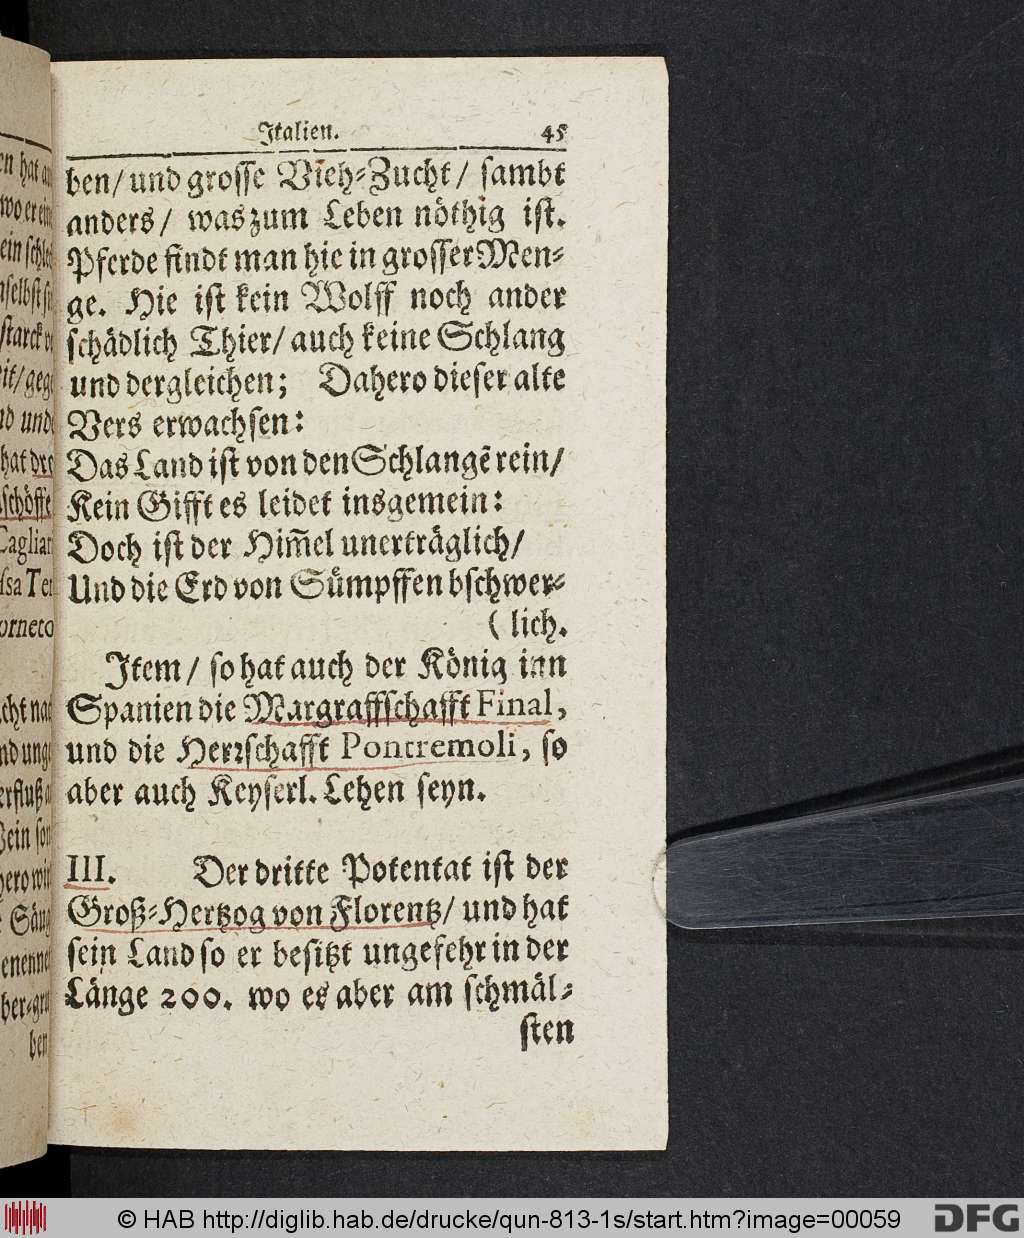 Italien. 45
ben/ und grosse Vieh-Zucht/ sambt
anders/ was zum Leben nöthig ist.
Pferde findt man hie in grosser Men-
ge. Hie ist kein Wolff noch ander
schädlich Thier/ auch keine Schlang
und dergleichen; Dahero dieser alte
Vers erwachsen:
Das Land ist von den Schlangẽ rein/
Kein Gifft es leidet insgemein:
Doch ist der Him̃el unerträglich/
Und die Erd von Sümpffen bschwer-
( lich.
Item/ so hat auch der König inn
Spanien die Margraffschafft Final,
und die Herꝛschafft Pontremoli, so
aber auch Keyserl. Lehen seyn.
III. Der dritte Potentat ist der
Groß-Hertzog von Florentz/ und hat
sein Land so er besitzt ungefehr in der
Länge 200. wo es aber am schmäl-
sten
© HAB http://diglib.hab.de/drucke/qun-813-1s/start.htm?image=00059
DFG